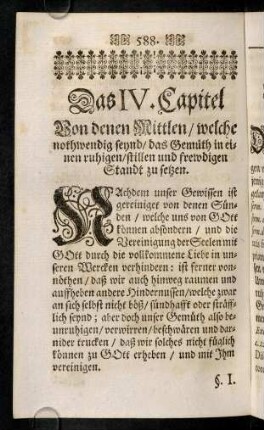 588.
Das IV. Capitel
Von denen Mittlen / welche
nothwendig seynd / das Gemüth in ei-
nen ruhigen / stillen und frewdigen
Standt zu setzen.
NAchdem unser Gewissen ist
gereiniget von denen Sün-
den / welche uns von GOtt
können absöndern / und die
Vereinigung der Seelen mit
GOtt durch die vollkommene Liebe in un-
seren Wercken verhindern: ist ferner von-
nöthen / daß wir auch hinweg raumen und
auffheben andere Hindernussen / welche zwar
an sich selbst nicht böß / sündhafft oder sträff-
lich seynd; aber doch unser Gemüth also be-
unruhigen / verwirren / beschwären und dar-
nider trucken / daß wir solches nicht füglich
können zu GOtt erheben / und mit Ihm
vereinigen.
§. I.